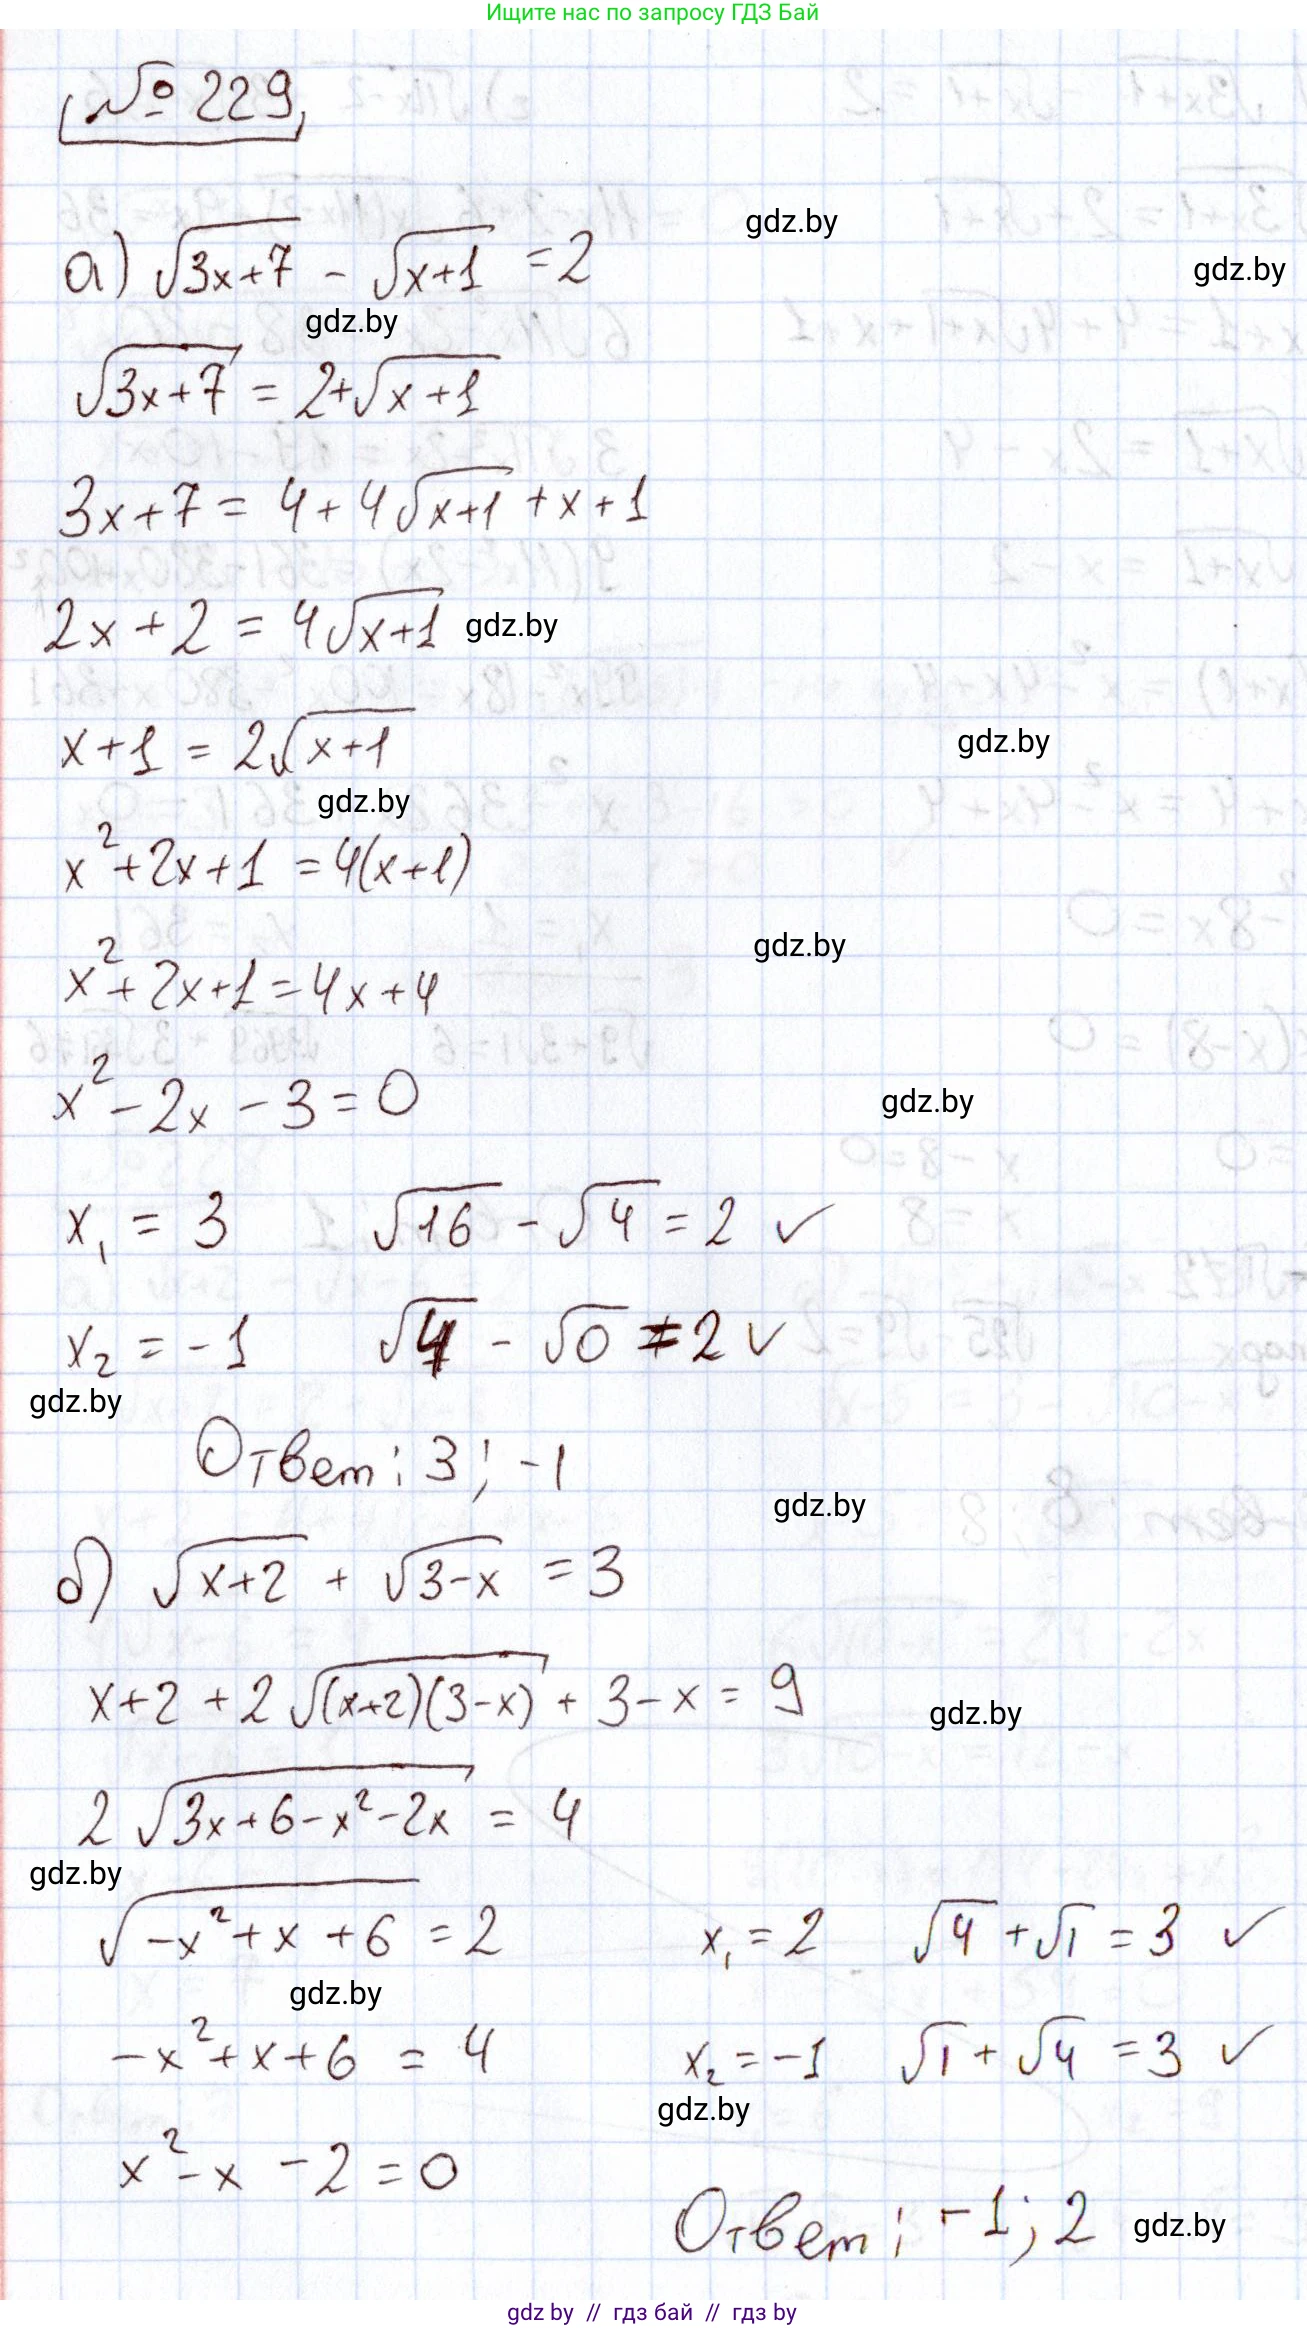 Ищите нас по запросу ГДЗ Бай
№ 229
а) √(3x+7) - √(x+1) = 2
gdz.by
gdz.by
gdz.by
√(3x+7) = 2+√(x+1)
3x+7 = 4+4√(x+1) + x + 1
2x + 2 = 4√(x+1) gdz.by
x+1 = 2√(x+1)
gdz.by
gdz.by
x²+2x+1 = 4(x+1)
gdz.by
x²+2x+1 = 4x+4
x² - 2x - 3 = 0
gdz.by
x₁ = 3 √16 - √4 = 2 ✓
x₂ = -1 √4 - √0 ≠ 2 ✓
gdz.by
Ответ: 3; -1
gdz.by
б) √(x+2) + √(3-x) = 3
x+2 + 2√((x+2)(3-x)) + 3-x = 9
gdz.by
2√(3x+6-x²-2x) = 4
gdz.by
√(-x²+x+6) = 2 x₁ = 2 √4 + √1 = 3 ✓
gdz.by
-x²+x+6 = 4 x₂ = -1 √1 + √4 = 3 ✓
gdz.by
x²-x-2 = 0
Ответ: -1; 2 gdz.by
gdz by // гдз бай // гдз by